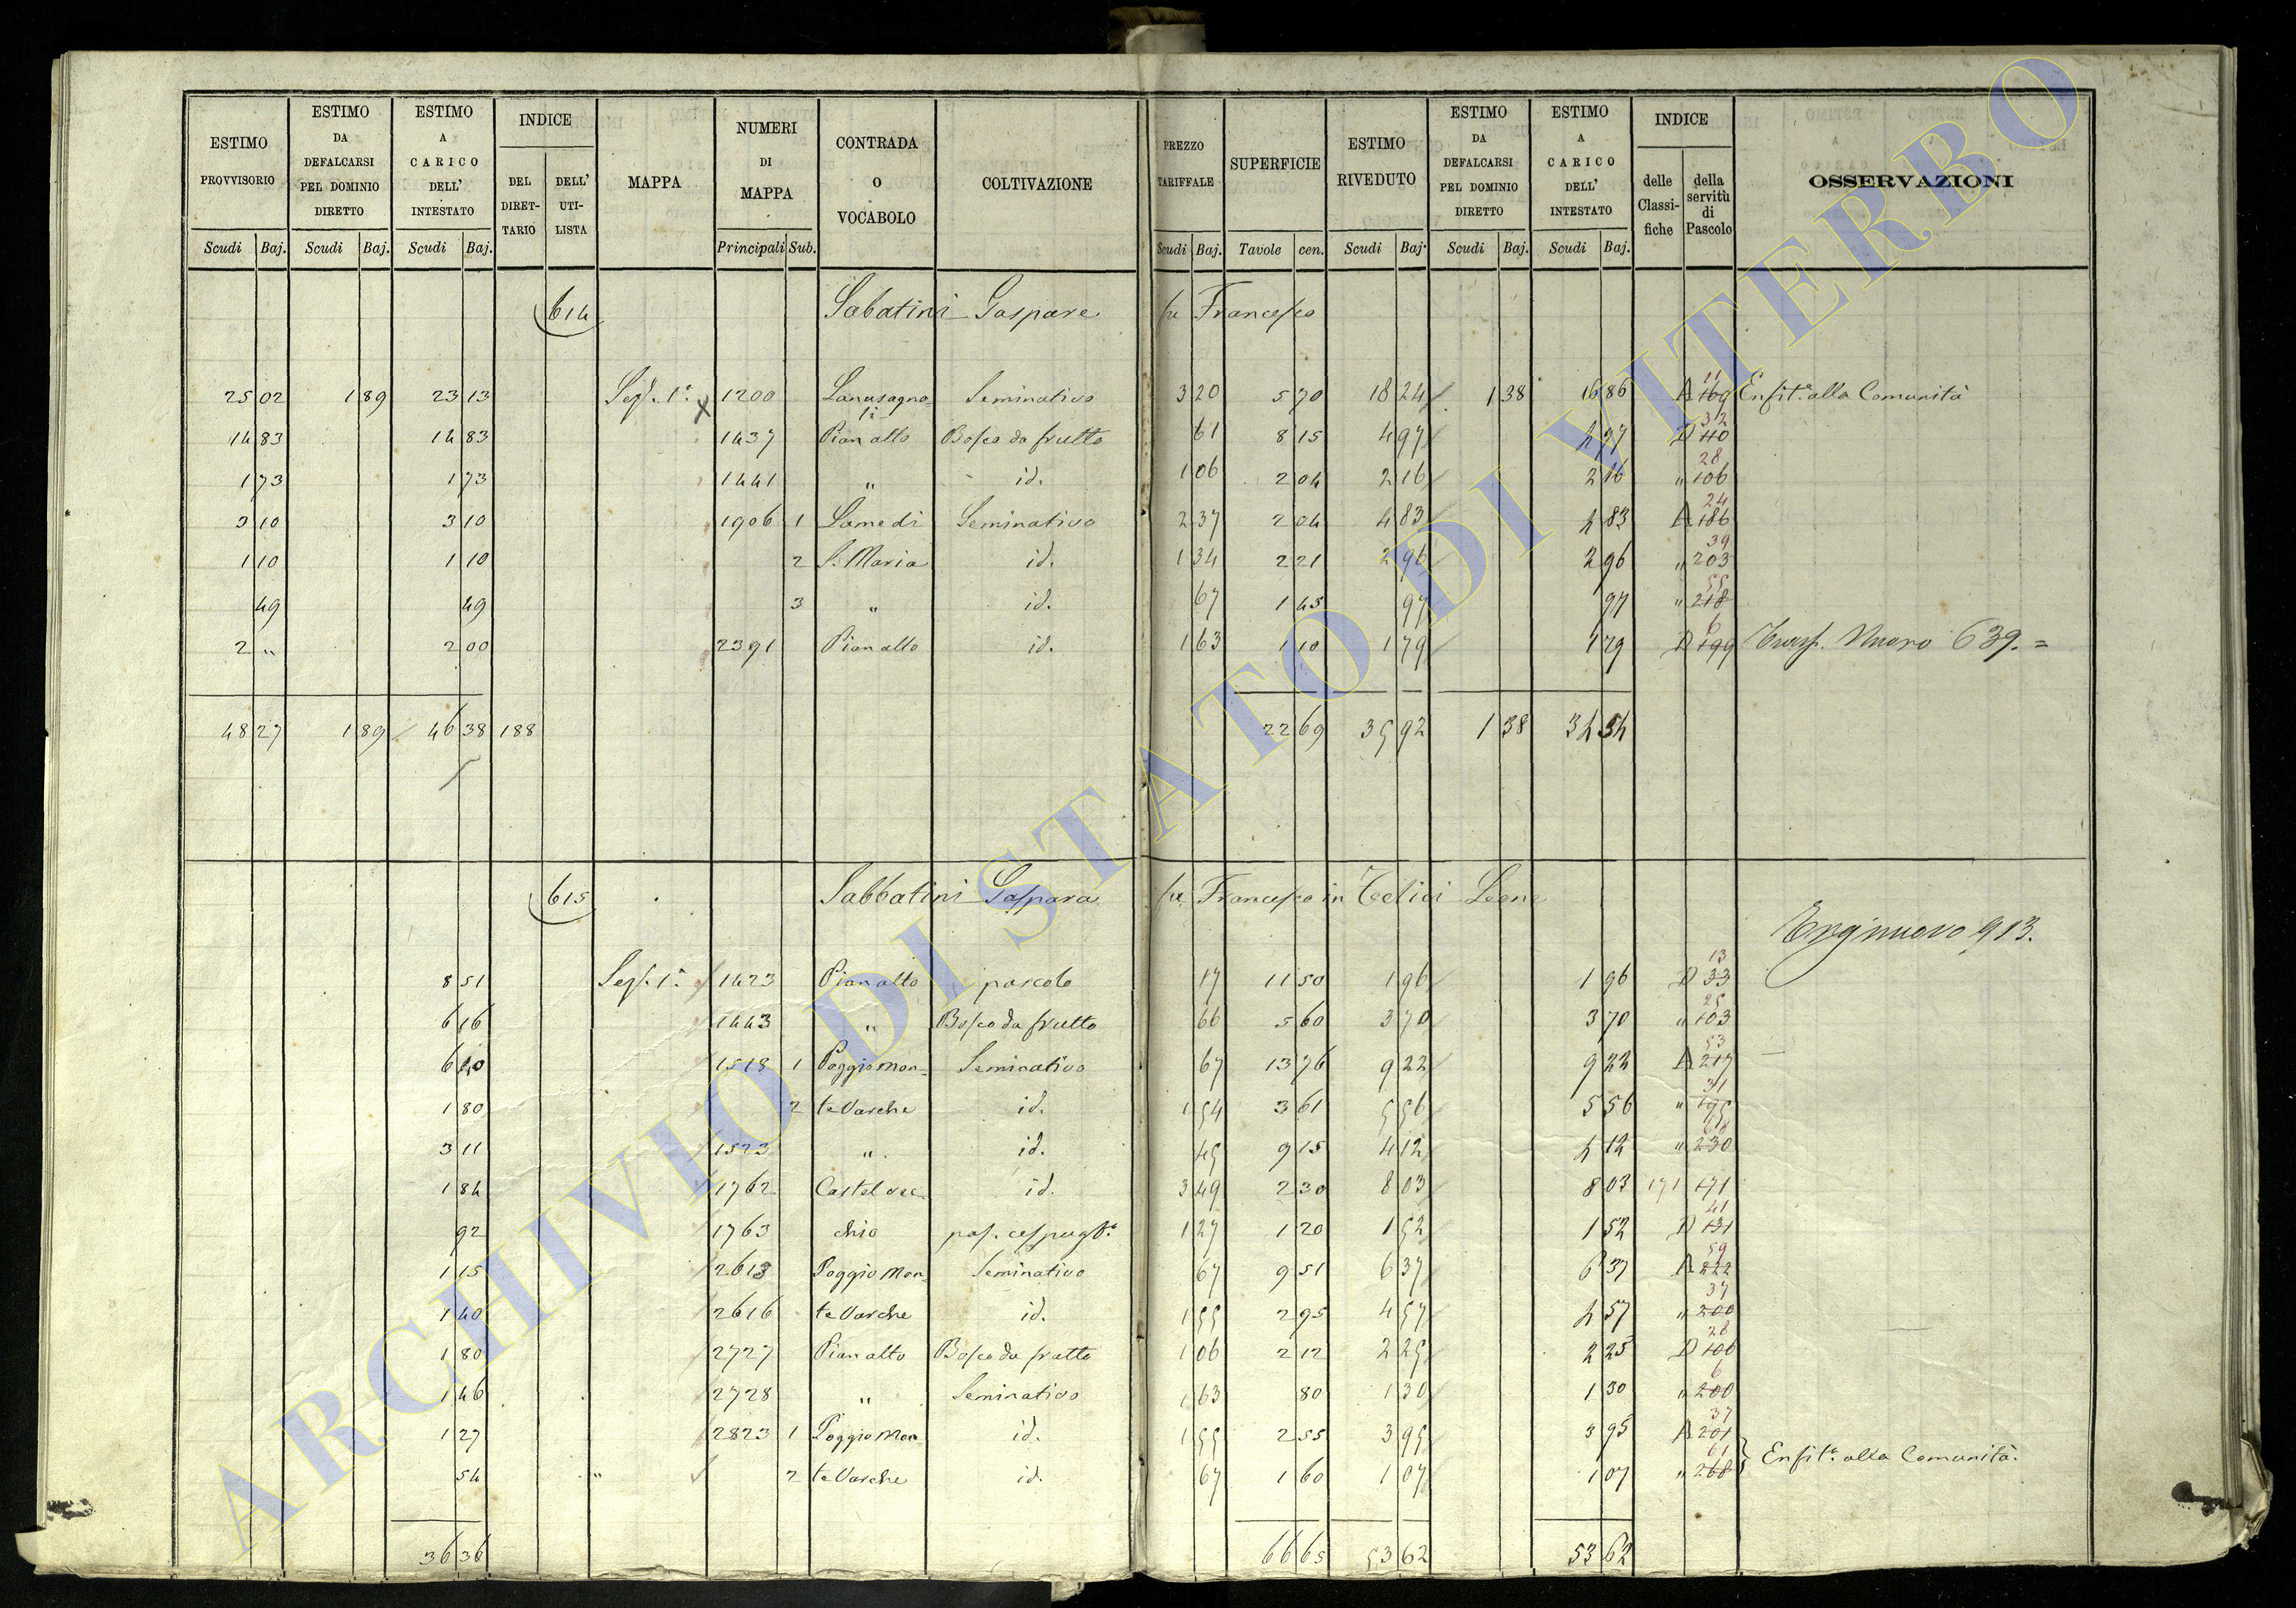 ESTIMO PROVVISORIO | ESTIMO DA DEFALCARSI PEL DOMINIO DIRETTO | ESTIMO A CARICO DELL' INTESTATO | INDICE | MAPPA | NUMERI DI MAPPA | CONTRADA O VOCABOLO | COLTIVAZIONE | PREZZO TARIFFALE | SUPERFICIE | ESTIMO RIVEDUTO | ESTIMO DA DEFALCARSI PEL DOMINIO DIRETTO | ESTIMO A CARICO DELL' INTESTATO | INDICE | OSSERVAZIONI
DEL DIRETTARIO | DELL' UTILISTA | delle Classifiche | della servitù di Pascolo
Scudi Baj. | Scudi Baj. | Scudi Baj. | Principali Sub. | Scudi Baj. | Tavole cen. | Scudi Baj. | Scudi Baj. | Scudi Baj.
614 Sabatini Gaspare fu Francesco
25 02 | 1 89 | 23 13 | Sez. 1ª | 1200 | Seminativo | 3 20 | 5 70 | 18 24 | 1 38 | 16 86 | A 169 11 | Enfit. alla Comunità
14 83 | 14 83 | 1437 | Pian alto | Bosco da frutto | 61 | 8 15 | 4 97 | 4 97 | D 110 32
1 73 | 1 73 | 1441 | " | id. | 1 06 | 2 04 | 2 16 | 2 16 | " 106 28
3 10 | 3 10 | 1906 | 1 | Lame di | Seminativo | 2 37 | 2 04 | 4 83 | 4 83 | A 186 24
1 10 | 1 10 | 2 | S. Maria | id. | 1 34 | 2 21 | 2 96 | 2 96 | " 203 39
49 | 49 | 3 | " | id. | 67 | 1 45 | 97 | 97 | " 218 55
2 " | 2 00 | 2391 | Pian alto | id. | 1 63 | 1 10 | 1 79 | 1 79 | D 199 6 | Trasp. Nuovo 639. =
48 27 | 1 89 | 46 38 | 188 | 22 69 | 35 92 | 1 38 | 34 54
615 Sabbatini Gaspara fu Francesco in Telici Leone
nuovo 913.
8 51 | Sez. 1ª | 1423 | Pian alto | pascolo | 17 | 11 50 | 1 96 | 1 96 | D 33 13
6 16 | 1443 | " | Bosco da frutto | 66 | 5 60 | 3 70 | 3 70 | " 103 25
6 40 | 1518 | 1 | Poggio Mon- | Seminativo | 67 | 13 76 | 9 22 | 9 22 | A 217 53
1 80 | 2 | te Varche | id. | 1 54 | 3 61 | 5 56 | 5 56 | " 195 31
3 11 | 1523 | " | id. | 45 | 9 15 | 4 12 | 4 12 | " 230 68
1 84 | 1762 | Castel vec- | id. | 3 49 | 2 30 | 8 03 | 8 03 | 171 171
92 | 1763 | chio | pas. cespugl. | 1 27 | 1 20 | 1 52 | 1 52 | D 131 41
1 15 | 2613 | Poggio Mon | Seminativo | 67 | 9 51 | 6 37 | 6 37 | A 222 59
1 40 | 2616 | te Varche | id. | 1 55 | 2 95 | 4 57 | 4 57 | " 200 37
1 80 | 2727 | Pian alto | Bosco da frutto | 1 06 | 2 12 | 2 25 | 2 25 | D 106 28
1 46 | 2728 | " | Seminativo | 1 63 | 80 | 1 30 | 1 30 | " 200 6
1 27 | 2823 | 1 | Poggio Mon | id. | 1 55 | 2 55 | 3 95 | 3 95 | A 201 37
54 | " | 2 | te Varche | id. | 67 | 1 60 | 1 07 | 1 07 | " 268 61 | Enfit. alla Comunità.
36 36 | 66 65 | 53 62 | 53 62
ARCHIVIO DI STATO DI VITERBO